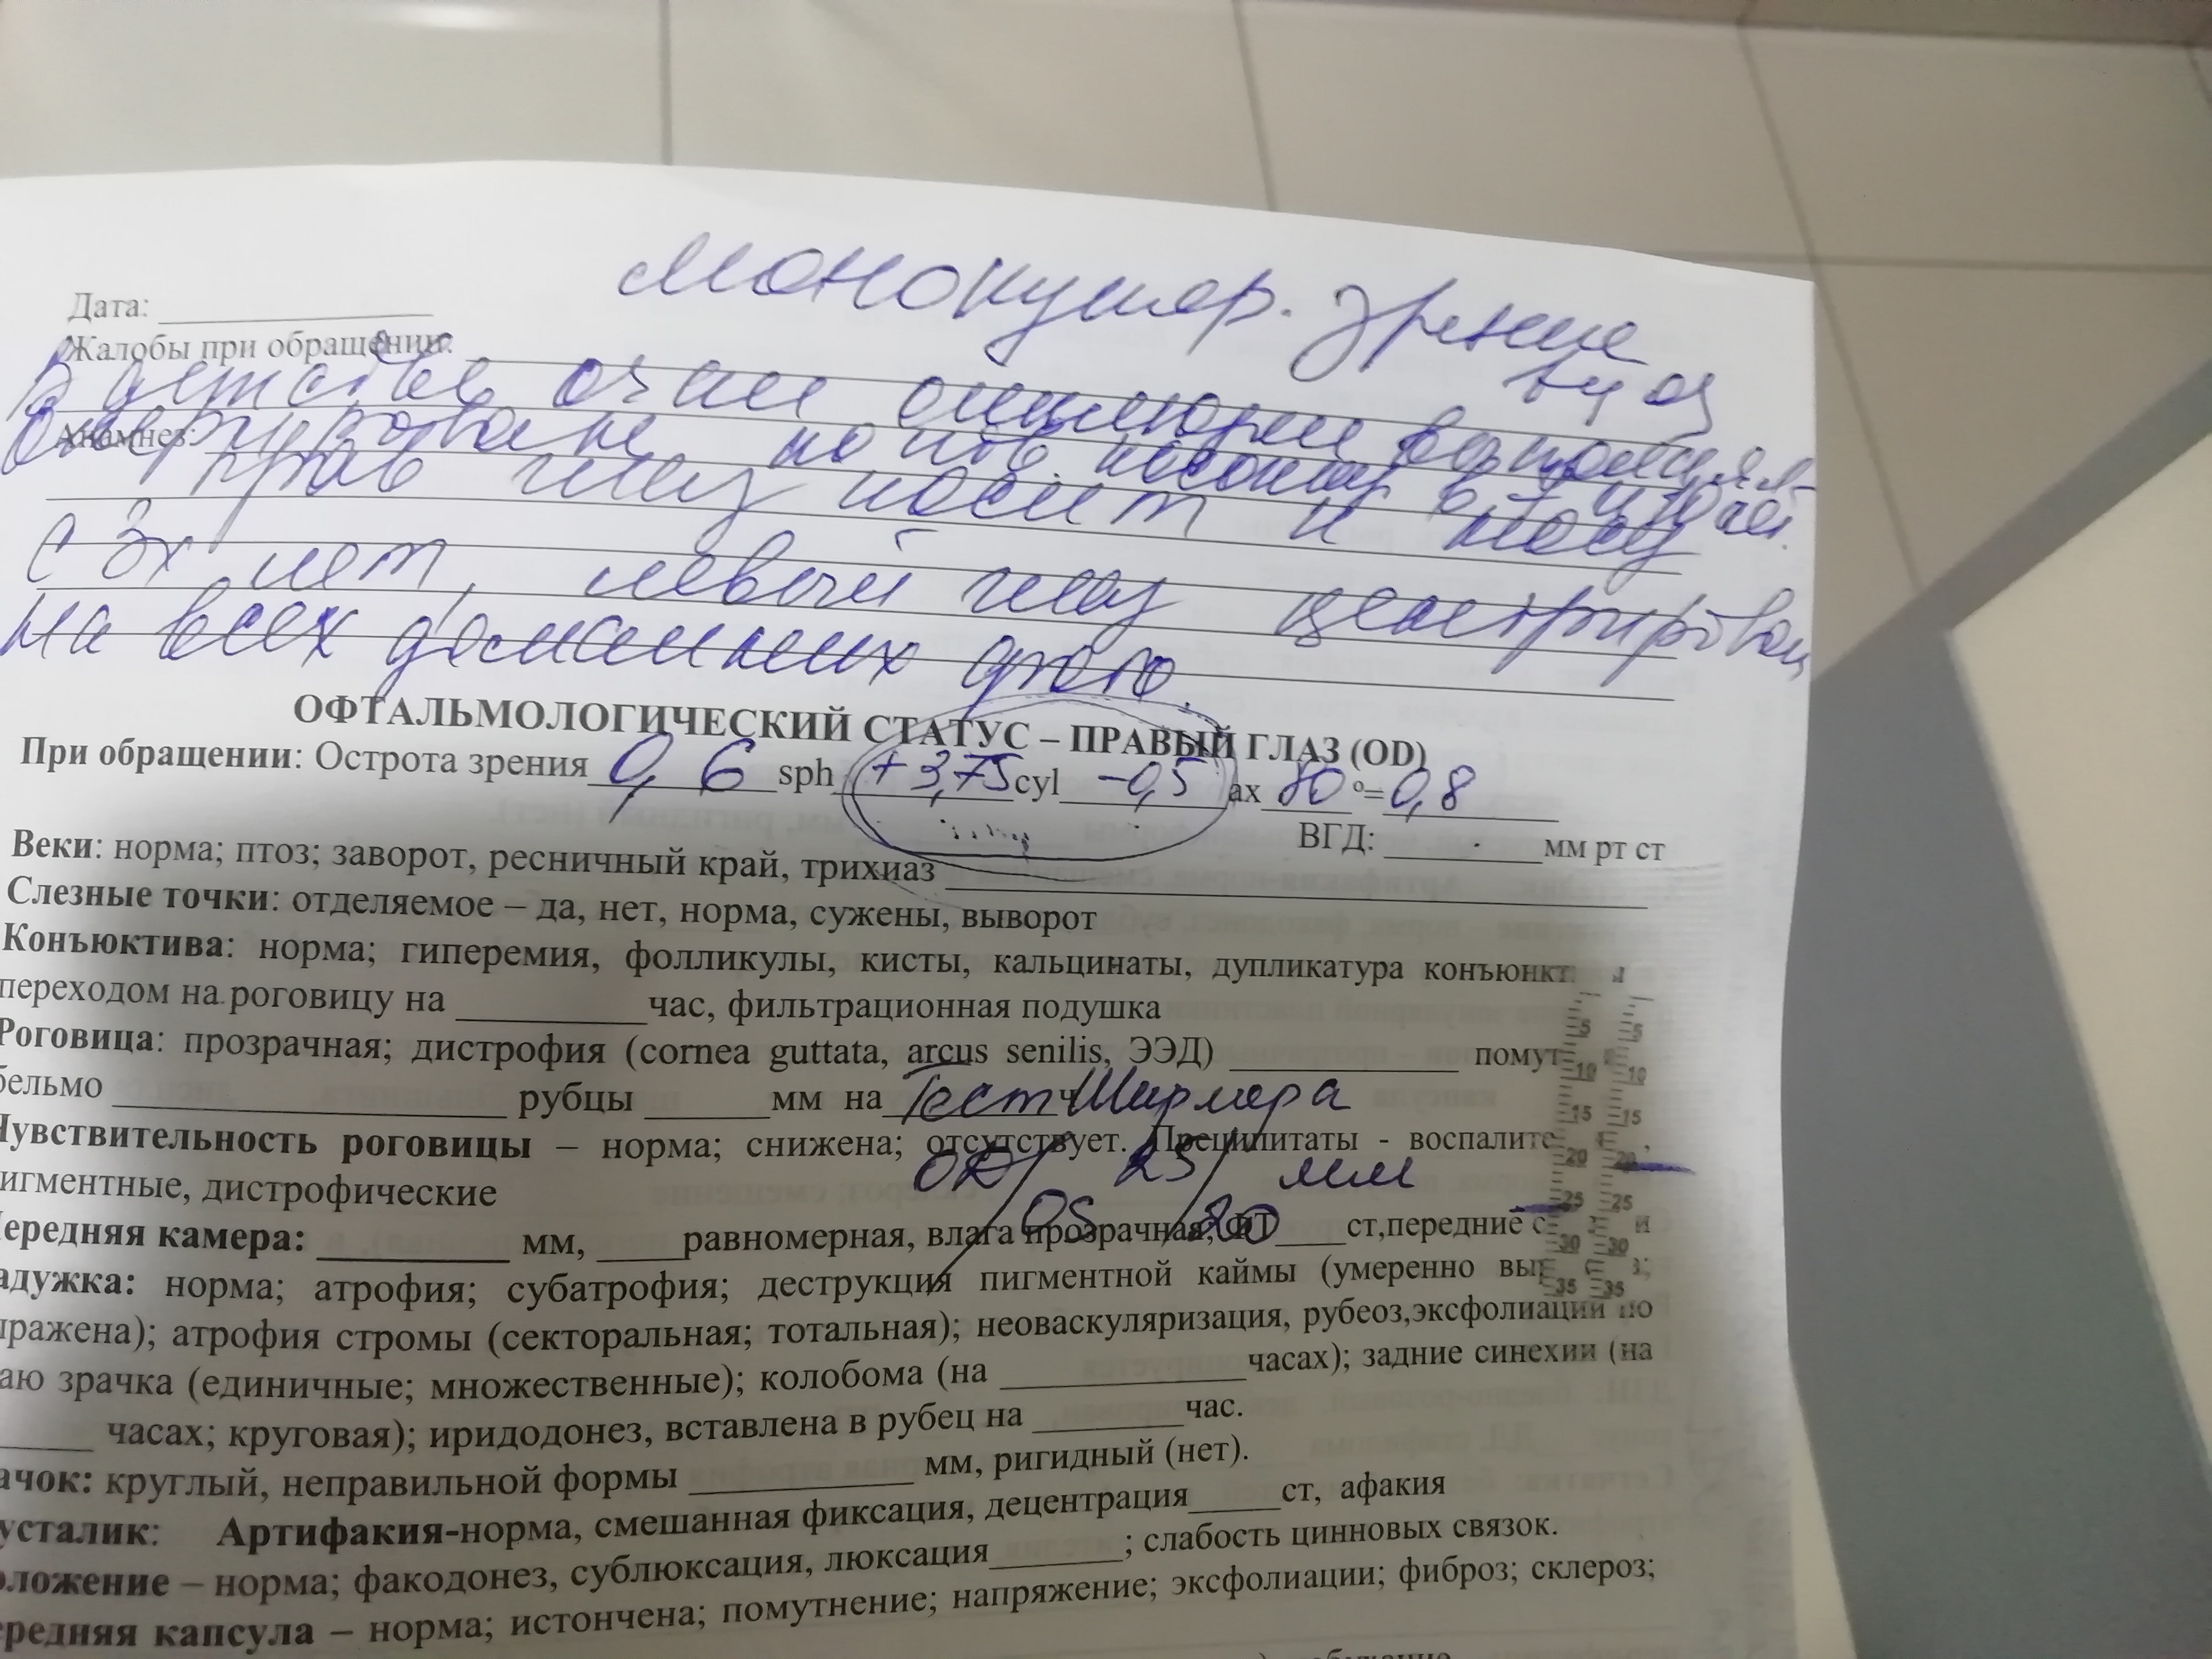 Монокуляр. зрение
Дата:
Жалобы при обращении:
В детстве очки
Анамнез:
Оперирована по пов. косоглаз
прав глаз косит к носу
с 3х лет, левый глаз центрирован
на всех фото.
ОФТАЛЬМОЛОГИЧЕСКИЙ СТАТУС – ПРАВЫЙ ГЛАЗ (OD)
При обращении: Острота зрения 0,6 sph +3,75 cyl -0,5 ax 80 °= 0,8
ВГД: мм рт ст
Веки: норма; птоз; заворот, ресничный край, трихиаз
Слезные точки: отделяемое – да, нет, норма, сужены, выворот
Конъюктива: норма; гиперемия, фолликулы, кисты, кальцинаты, дупликатура конъюнкт
переходом на роговицу на час, фильтрационная подушка
Роговица: прозрачная; дистрофия (cornea guttata, arcus senilis, ЭЭД) помут
бельмо рубцы мм на ч
Тест Ширмера
Чувствительность роговицы – норма; снижена; отсутствует. Преципитаты - воспалите
OD/OS 25/20 мм
игментные, дистрофические
ередняя камера: мм, равномерная, влага прозрачная, ФТ ст,передние с
адужка: норма; атрофия; субатрофия; деструкция пигментной каймы (умеренно выр
ыражена); атрофия стромы (секторальная; тотальная); неоваскуляризация, рубеоз,эксфолиации по
аю зрачка (единичные; множественные); колобома (на часах); задние синехии (на
часах; круговая); иридодонез, вставлена в рубец на час.
ачок: круглый, неправильной формы мм, ригидный (нет).
усталик: Артифакия-норма, смешанная фиксация, децентрация ст, афакия
оложение – норма; факодонез, сублюксация, люксация ; слабость цинновых связок.
ередняя капсула – норма; истончена; помутнение; напряжение; эксфолиации; фиброз; склероз;
5 5
10 10
15 15
20 20
25 25
30 30
35 35